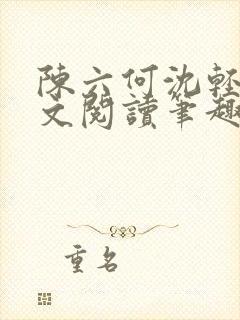 陳六何沈輕
文閱讀筆趣
重名